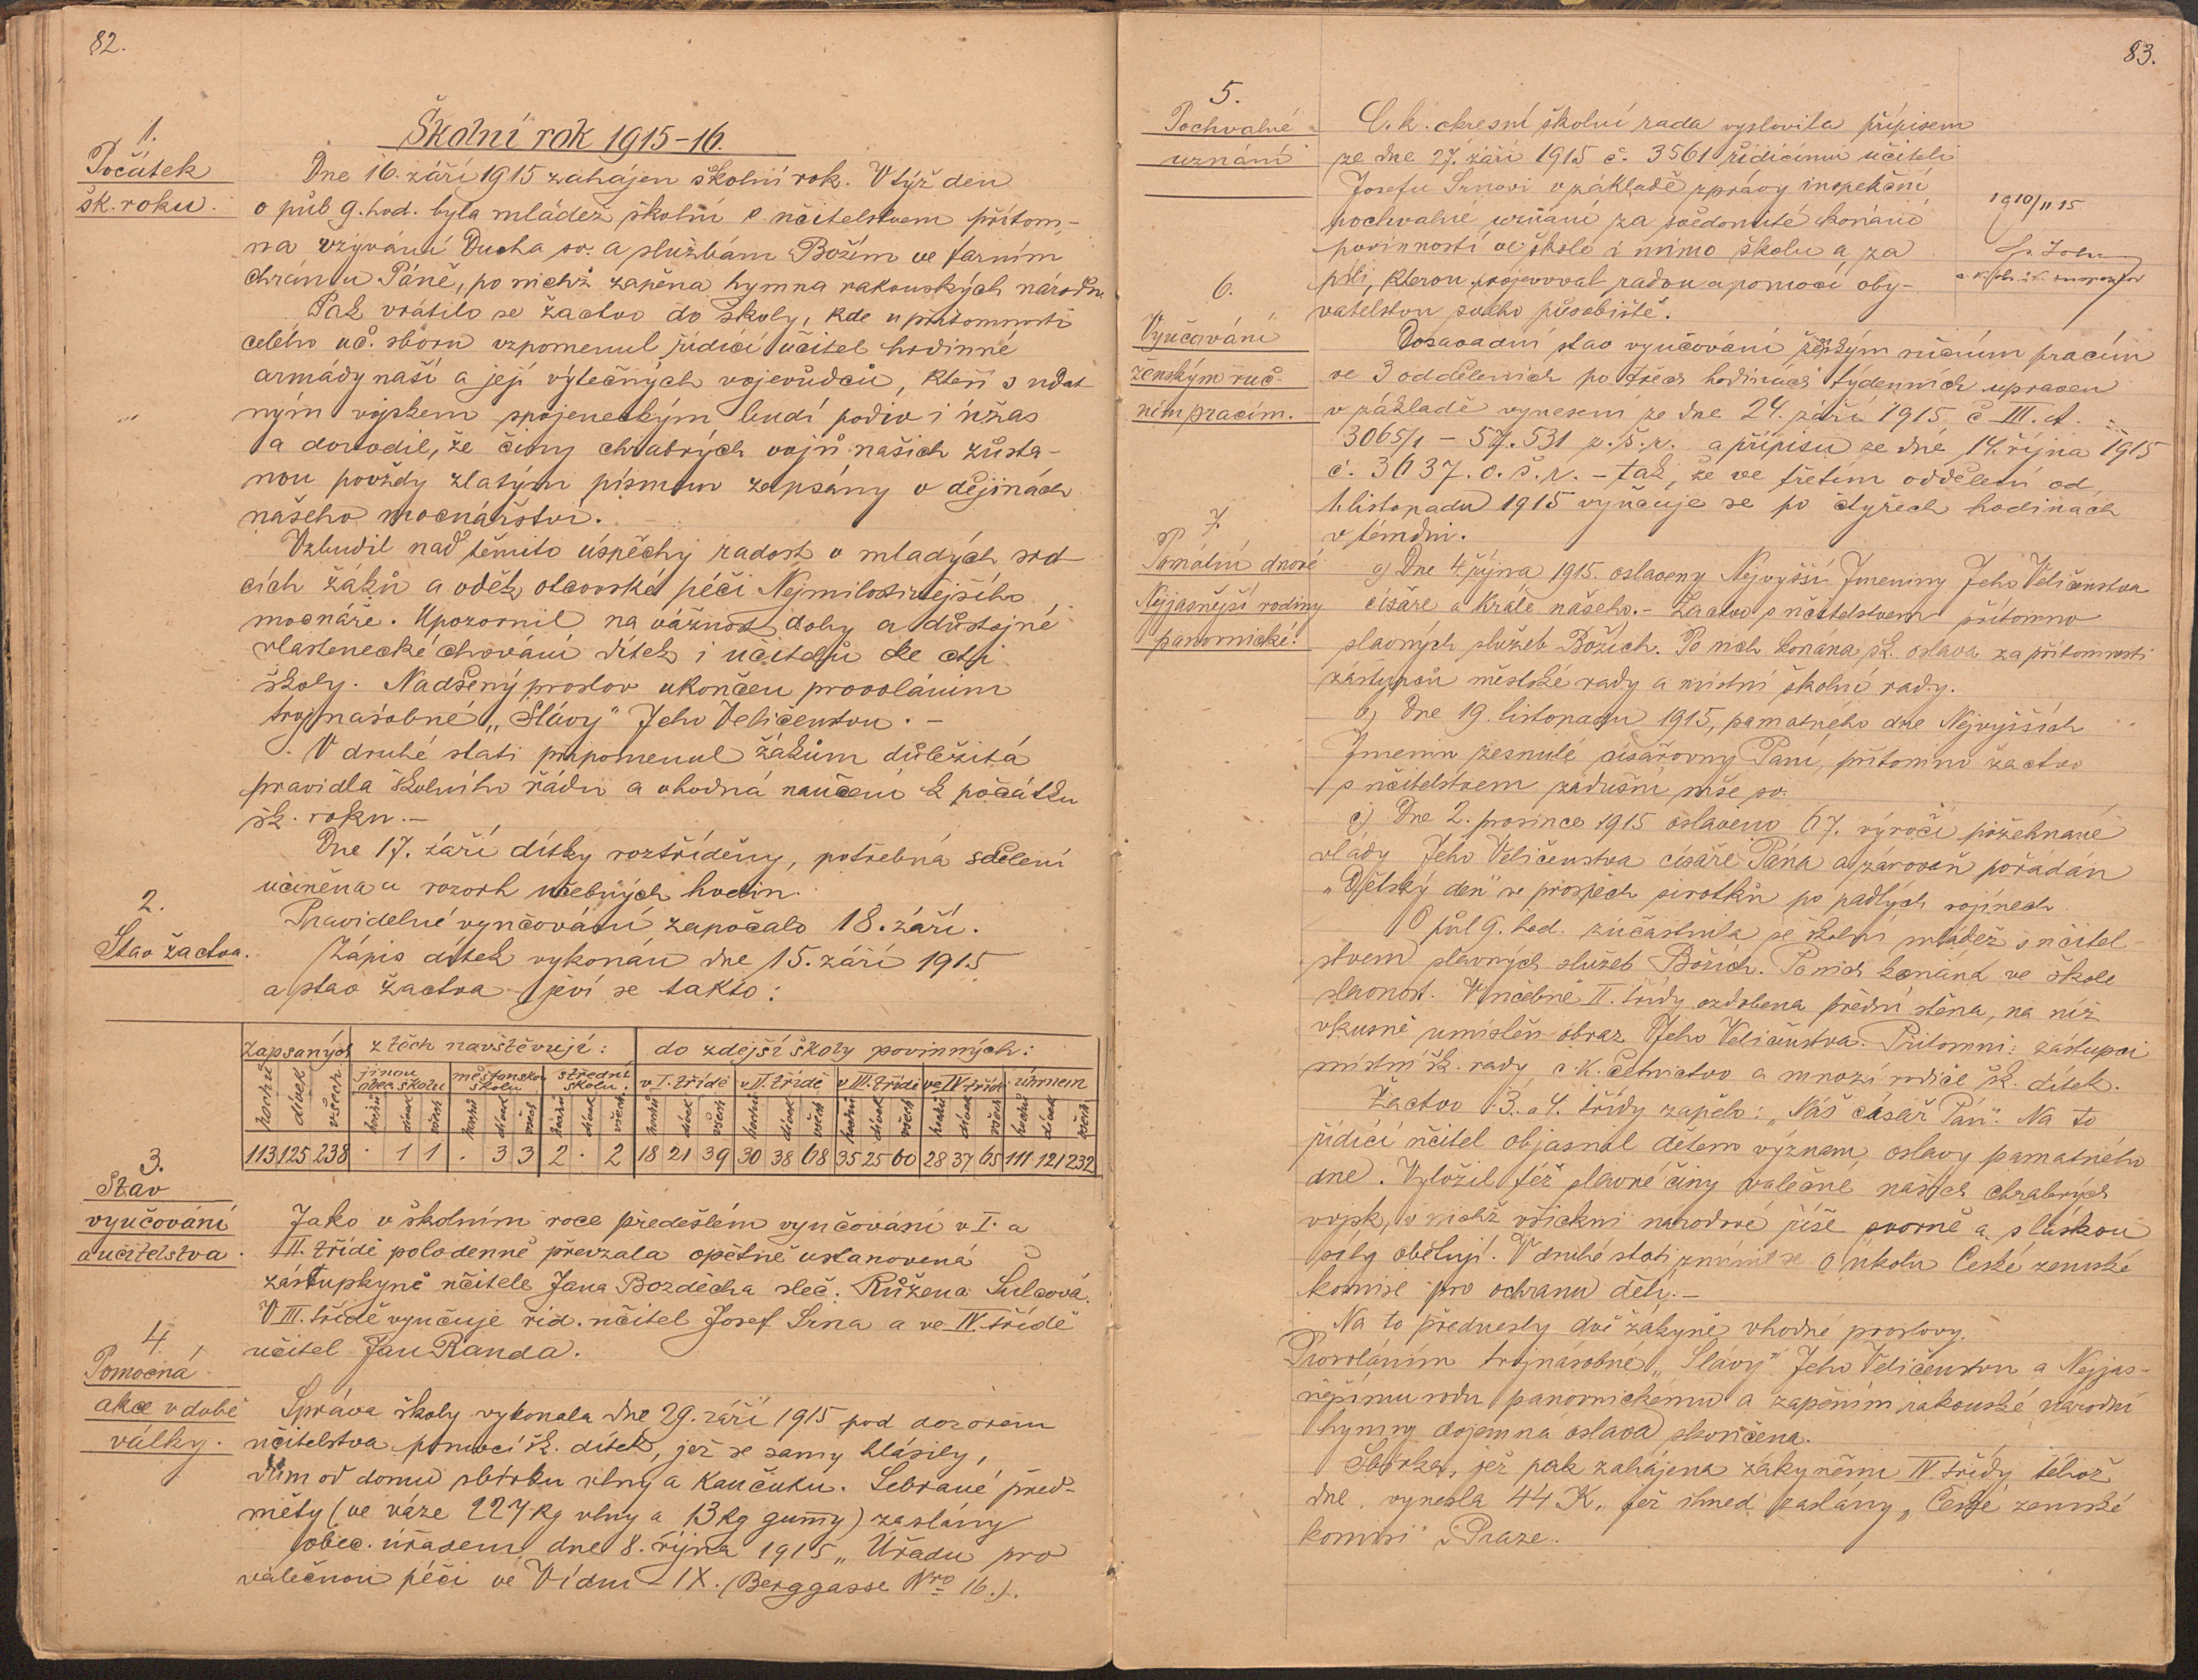 82.
Školní rok 1915-16.
1.
Počátek
šk. roku.
Dne 16. září 1915 zahájen školní rok. V týž den
o půl 9. hod. byla mládež školní s učitelstvem přítom-
na vzývání Ducha sv. a službám Božím ve farním
chrámu Páně, po nichž zapěna hymna rakouských národů.
Pak vrátilo se žactvo do školy, kde u přítomnosti
celého uč. sboru vzpomenul řídící učitel hrdinné
armády naší a její výtečných vojevůdců, kteří s udat
ným vojskem spojeneckým budí podiv i úžas
a dovodil, že činy chrabrých vojů našich zůsta-
nou povždy zlatým písmem zapsány v dějinách
našeho mocnářství.
Vzbudil nad těmito úspěchy radost v mladých srd
cích žáků a vděk otcovské péči Nejmilostivějšího
mocnáře. Upozornil na vážnost doby a důstojné
vlastenecké chování dítek i učitelů ke cti
školy. Nadšený proslov ukončen provoláním
trojnásobné „Slávy" Jeho Veličenstvu. -
V druhé stati připomenul žákům důležitá
pravidla školního řádu a vhodná naučení k počátku
šk. roku. -
Dne 17. září dítky roztříděny, potřebná sdělení
učiněna a rozvrh učebných hodin.
Pravidelné vyučování započalo 18. září.
2.
Stav žactva.
Zápis dítek vykonán dne 15. září 1915
a stav žactva jeví se takto:
Zapsaných z těch navštěvují: do zdejší školy povinných:
hochů dívek všech jinou obec. školu měšťanskou školu střední školu. v I. třídě v II. třídě v III. třídě ve IV. třídě úhrnem
hochů dívek všech hochů dívek všech hochů dívek všech hochů dívek všech hochů dívek všech hochů dívek všech hochů dívek všech hochů dívek všech
113 125 238 . 1 1 . 3 3 2 . 2 18 21 39 30 38 68 35 25 60 28 37 65 111 121 232
3.
Stav
vyučování
a učitelstva.
Jako v školním roce předešlém vyučování v I. a
II. třídě polodenně převzala opětně ustanovená
zástupkyně učitele Jana Bozděcha sleč. Růžena Šulcová.
V III. třídě vyučuje říd. učitel Josef Srna a ve IV. třídě
učitel Jan Randa.
4.
Pomocná
akce v době
války.
Správa školy vykonala dne 29. září 1915 pod dozorem
učitelstva pomocí šk. dítek, jež se samy hlásily,
dům od domu sbírku vlny a kaučuku. Sebrané před-
měty (ve váze 227 kg vlny a 13 kg gumy) zaslány
obec. úřadem dne 8. října 1915 „Úřadu pro
válečnou péči ve Vídni - IX. (Berggasse Nro 16.).
83.
5.
Pochvalné
uznání
C. k. okresní školní rada vyslovila přípisem
ze dne 27. září 1915 č. 3561 řídícímu učiteli
Josefu Srnovi v základě zprávy inspekční
pochvalné uznání za svědomité konání
povinností ve škole i mimo školu a za
píli, kterou projevoval radou a pomocí oby-
vatelstvu svého působiště.
19 10/11 15
c. k. okr. šk. inspektor
6.
Vyučování
ženským ruč-
ním pracím.
Dosavadní stav vyučování ženským ručním pracím
ve 3 odděleních po třech hodinách týdenních upraven
v základě vynesení ze dne 24. září 1915 č III. A.
3065/1 - 57.531 z. š. r. a přípisu ze dne 14. října 1915
č. 3637. o. š. r. - tak, že ve třetím oddělení od
1. listopadu 1915 vyučuje se po čtyřech hodinách
v témdni.
7.
Památní dnové
Nejjasnější rodiny
panovnické.
a) Dne 4. října 1915. oslaveny Nejvyšší Jmeniny Jeho Veličenstva
císaře a krále našeho. - Žactvo s učitelstvem přítomno
slavných služeb Božích. Po nich konána šk. oslava za přítomnosti
zástupců městské rady a místní školní rady.
b) Dne 19. listopadu 1915, památného dne Nejvyšších
Jmenin zesnulé císařovny Paní, přítomno žactvo
s učitelstvem zádušní mše sv.
c) Dne 2. prosince 1915 oslaveno 67. výročí požehnané
vlády Jeho Veličenstva císaře Pána a zároveň pořádán
„Dětský den" ve prospěch sirotků po padlých vojínech
O půl 9. hod. zúčastnila se školní mládež s učitel-
stvem slavných služeb Božích. Po nich konána ve škole
slavnost. V učebně II. třídy ozdobena přední stěna, na níž
vkusně umístěn obraz Jeho Veličenstva. Přítomni: zástupci
místní šk. rady, c. k. četnictvo a mnozí rodiče šk. dítek.
Žactvo 3. a 4. třídy zapělo: „Náš císař Pán". Na to
řídící učitel objasnil dětem význam oslavy památného
dne. Vyložil též slavné činy válečné našich chrabrých
vojsk, v nichž všickni národové říše svorně a s láskou
síly obětují. V druhé stati zmínil se o úkolu České zemské
komise pro ochranu dětí. -
Na to přednesly dvě žákyně vhodné proslovy.
Provoláním trojnásobné „Slávy" Jeho Veličenstvu a Nejjas-
nějšímu rodu panovnickému a zapěním rakouské národní
hymny dojemná oslava skončena.
Sbírka, jež pak zahájena žákyněmi IV. třídy téhož
dne, vynesla 44 K, jež ihned zaslány „České zemské
komisi" v Praze.